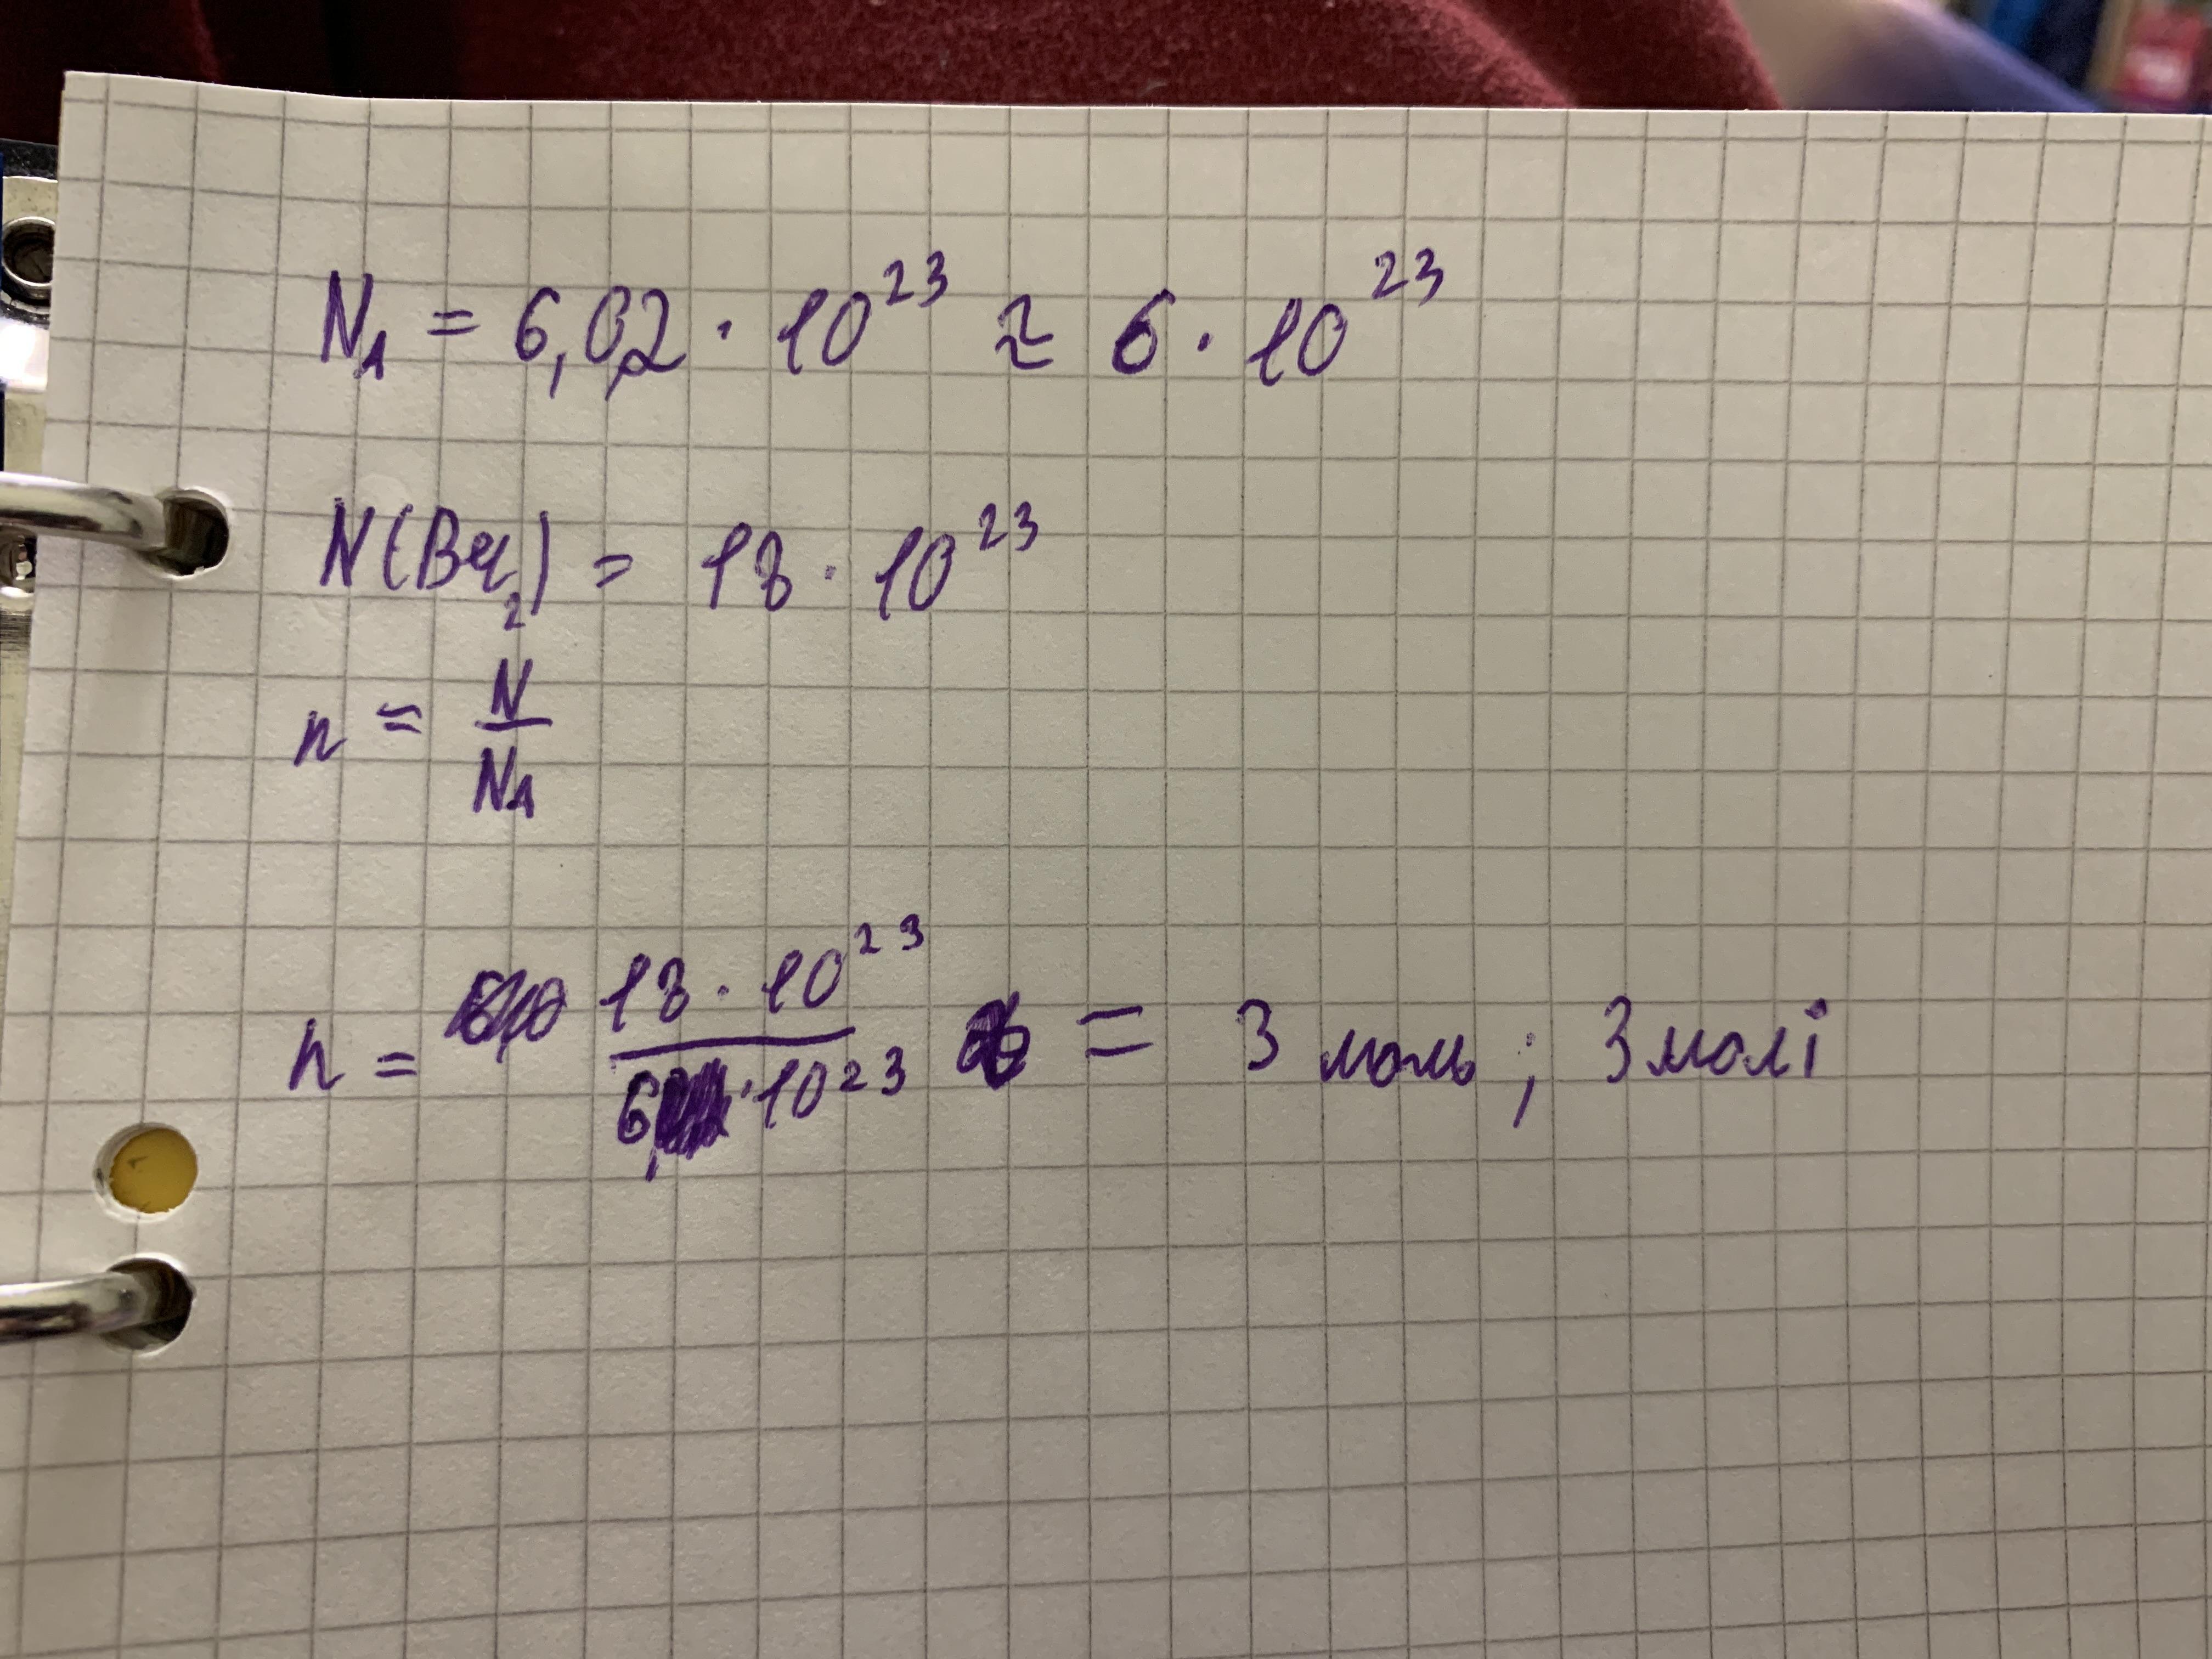 N₁ = 6,02 · 10²³ ≈ 6 · 10²³
N(Br₂) = 18 · 10²³
n = N/N₁
n = 18 · 10²³ / 6 · 10²³ = 3 моль ; 3 молі